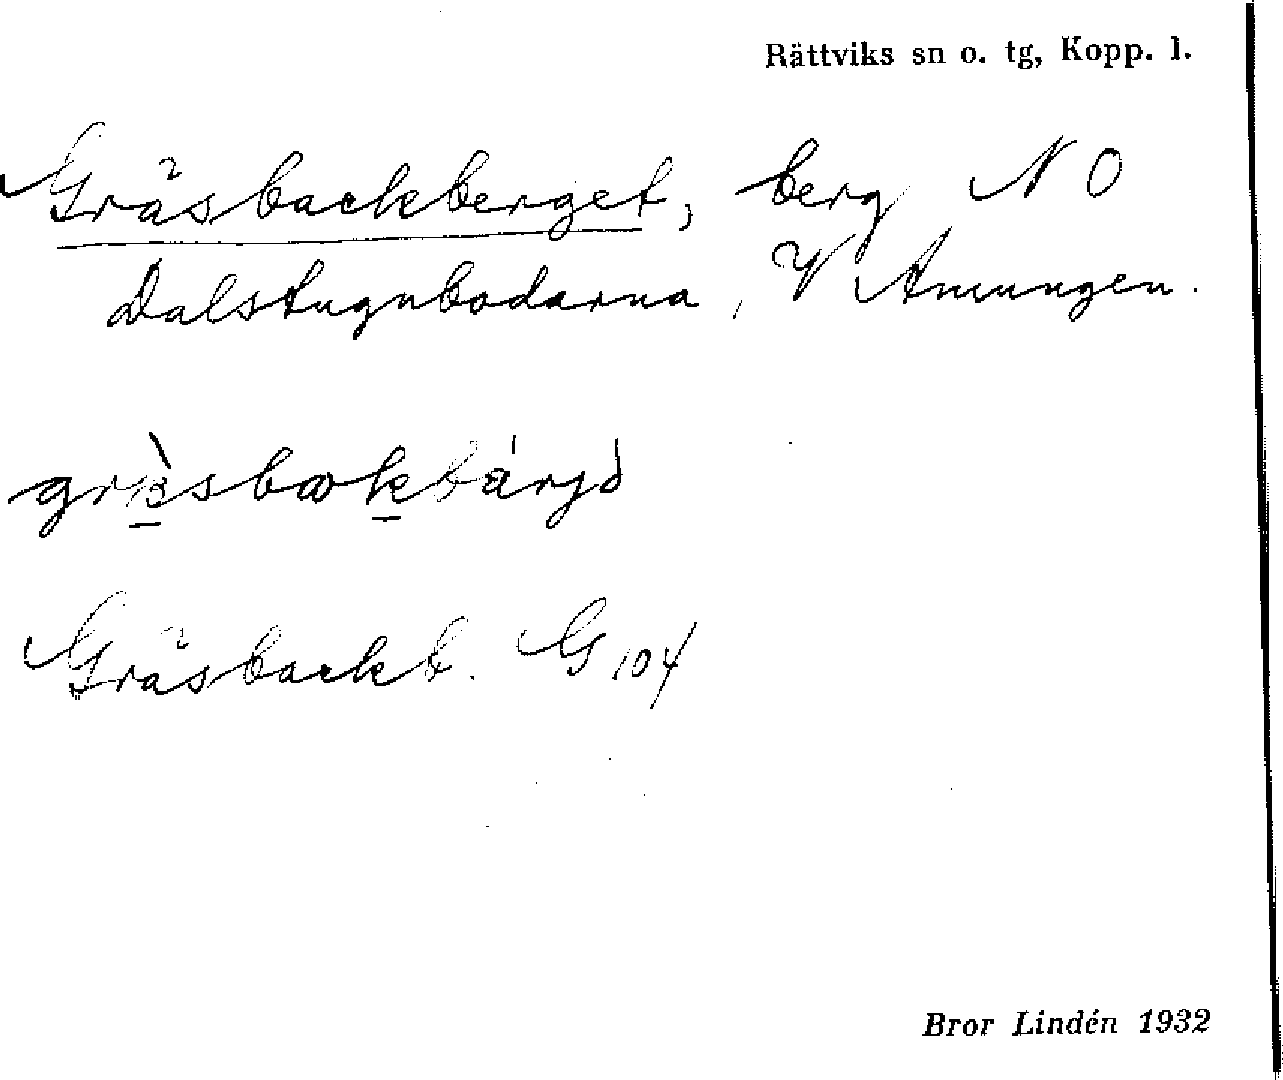 Rättviks sn o. tg, Kopp. l.
Gräsbackberget, berg N O
Dalstugubodarna, V Amungen.
Gräsbackb. G 104
Bror Lindén 1932